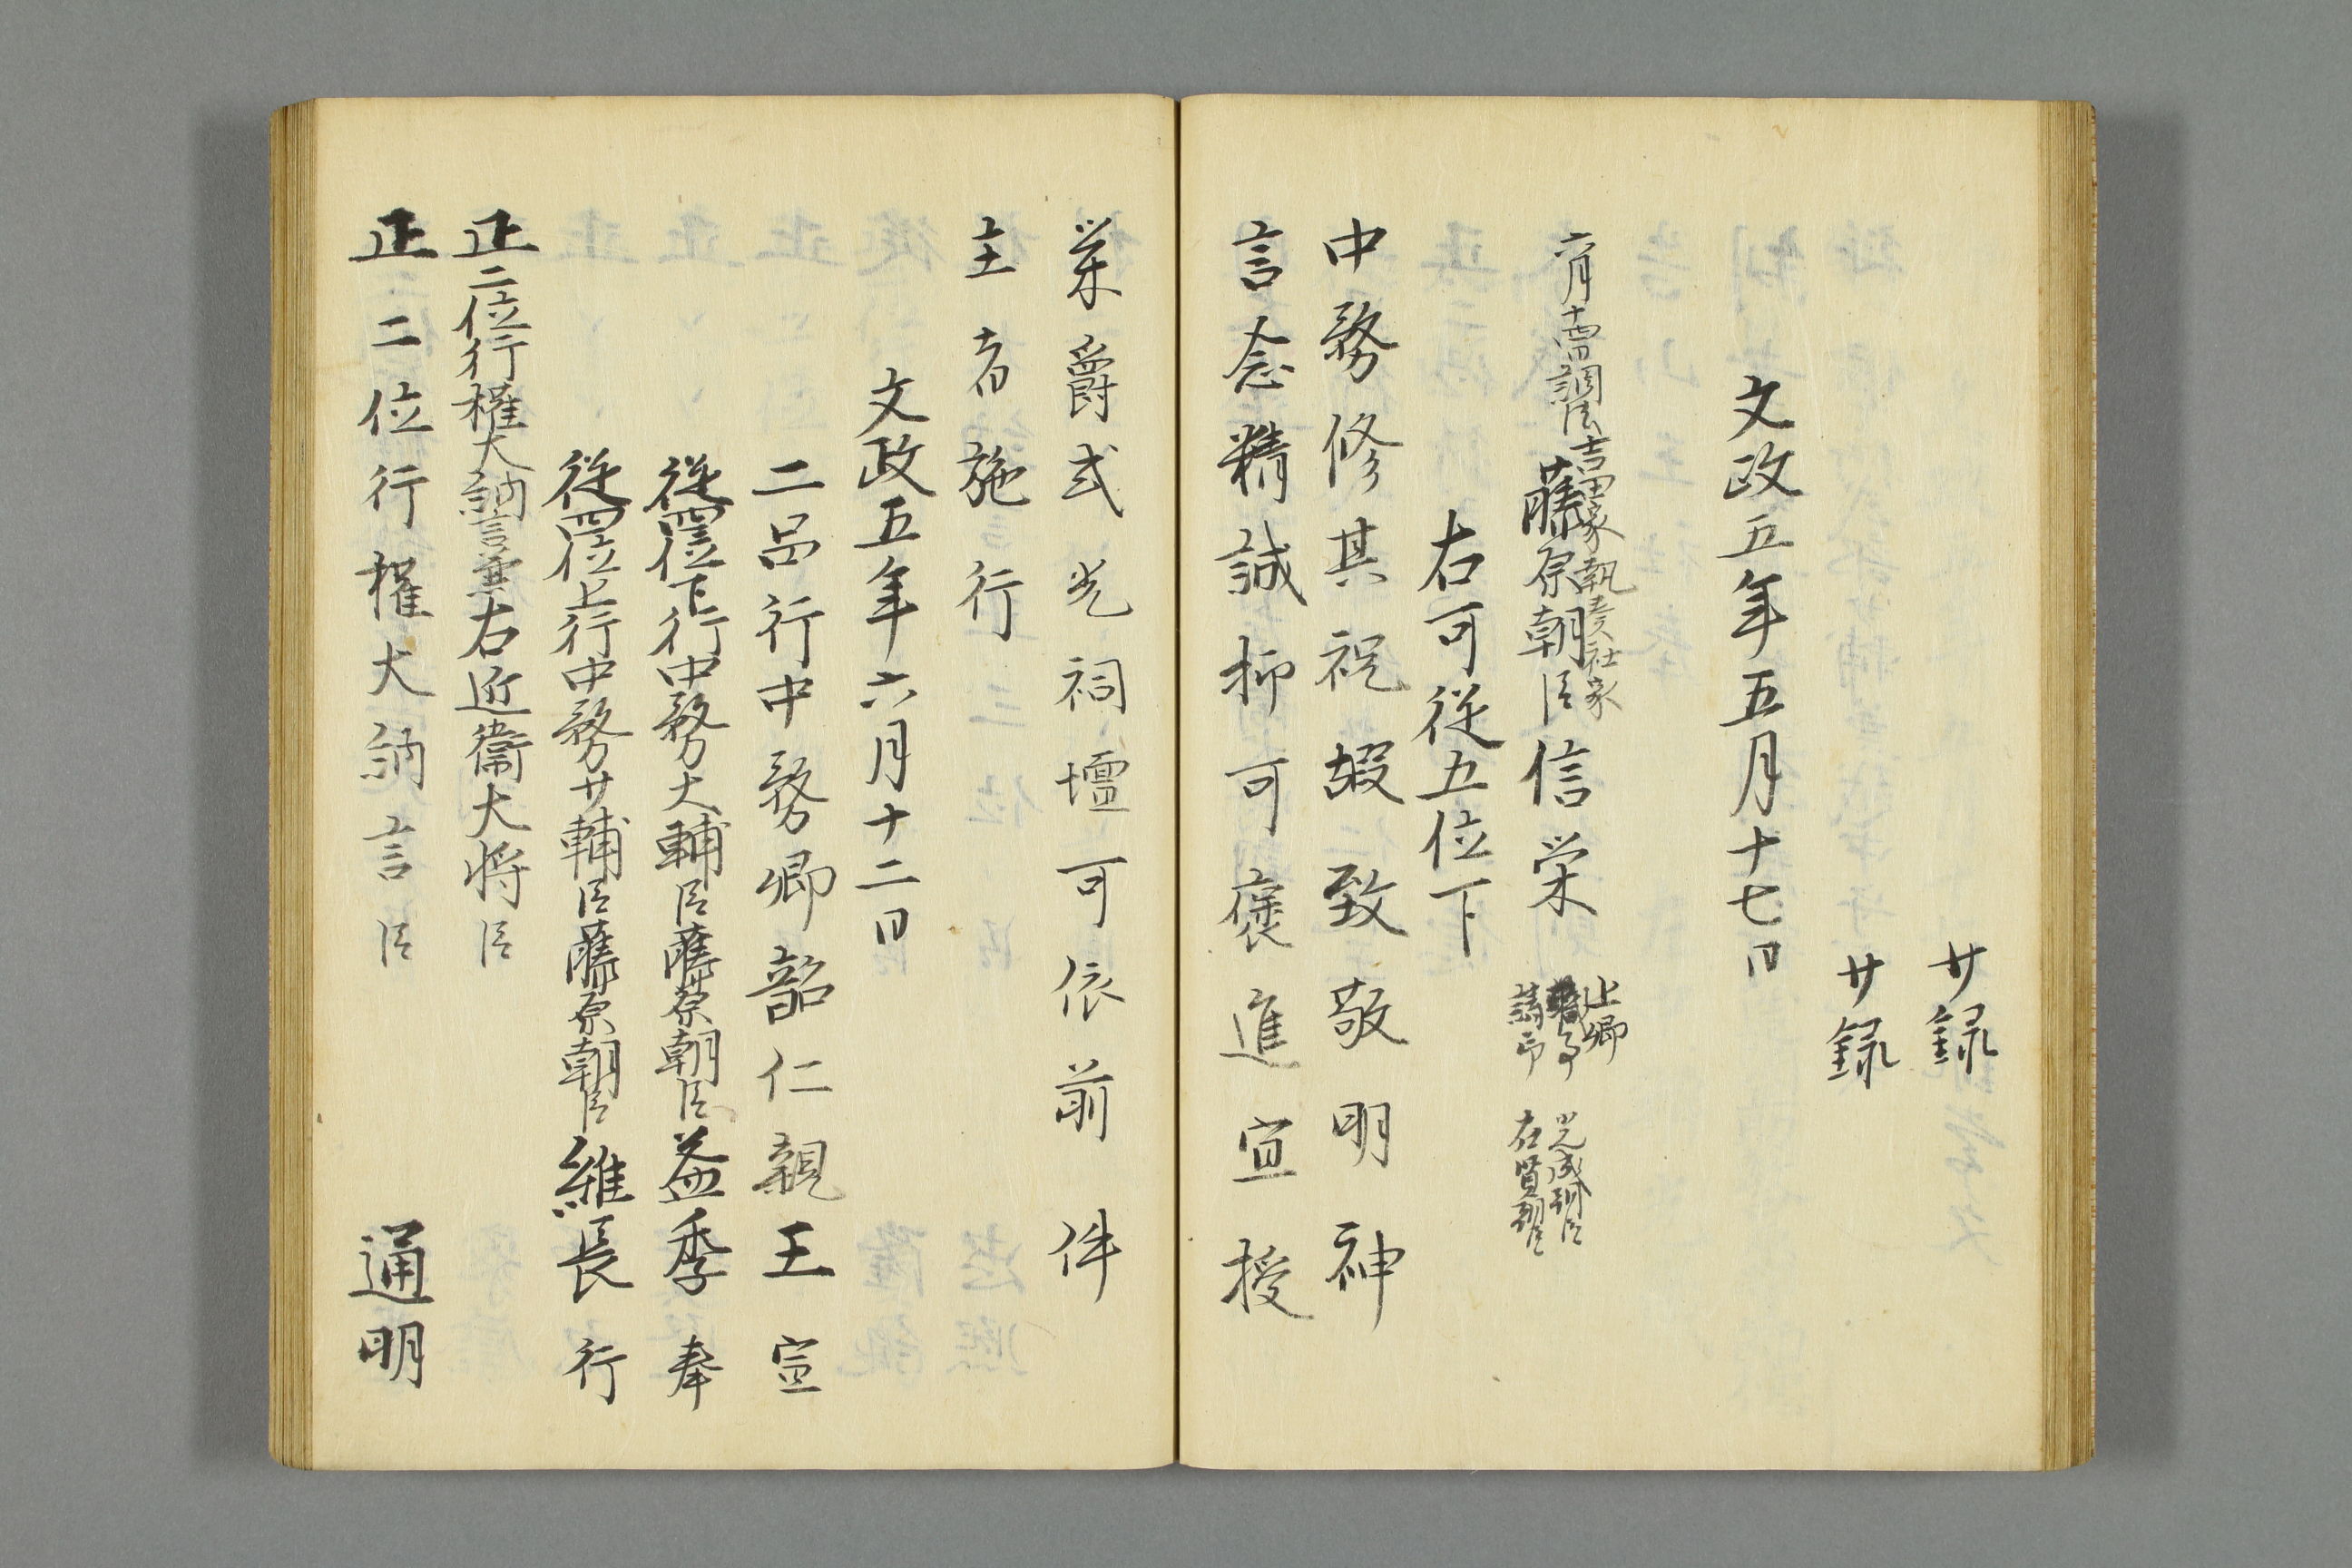 廾録
廾録
文政五年五月十七日
吉田家執奏社家
藤原朝臣信栄
上卿
職事 光成朝臣
右可従五位下
中務修其祝嘏致敬明神
言念精誠抑可褒進宜授
栄爵式光祠壇可依前件
主者施行
文政五年六月十二日
二品行中務卿韶仁親王宣
従四位下行中務大輔臣藤原朝臣益季奉
従四位上行中務廾輔臣藤原朝臣維長行
正二位行権大納言兼右近衛大将臣
正二位行権大納言臣 通明